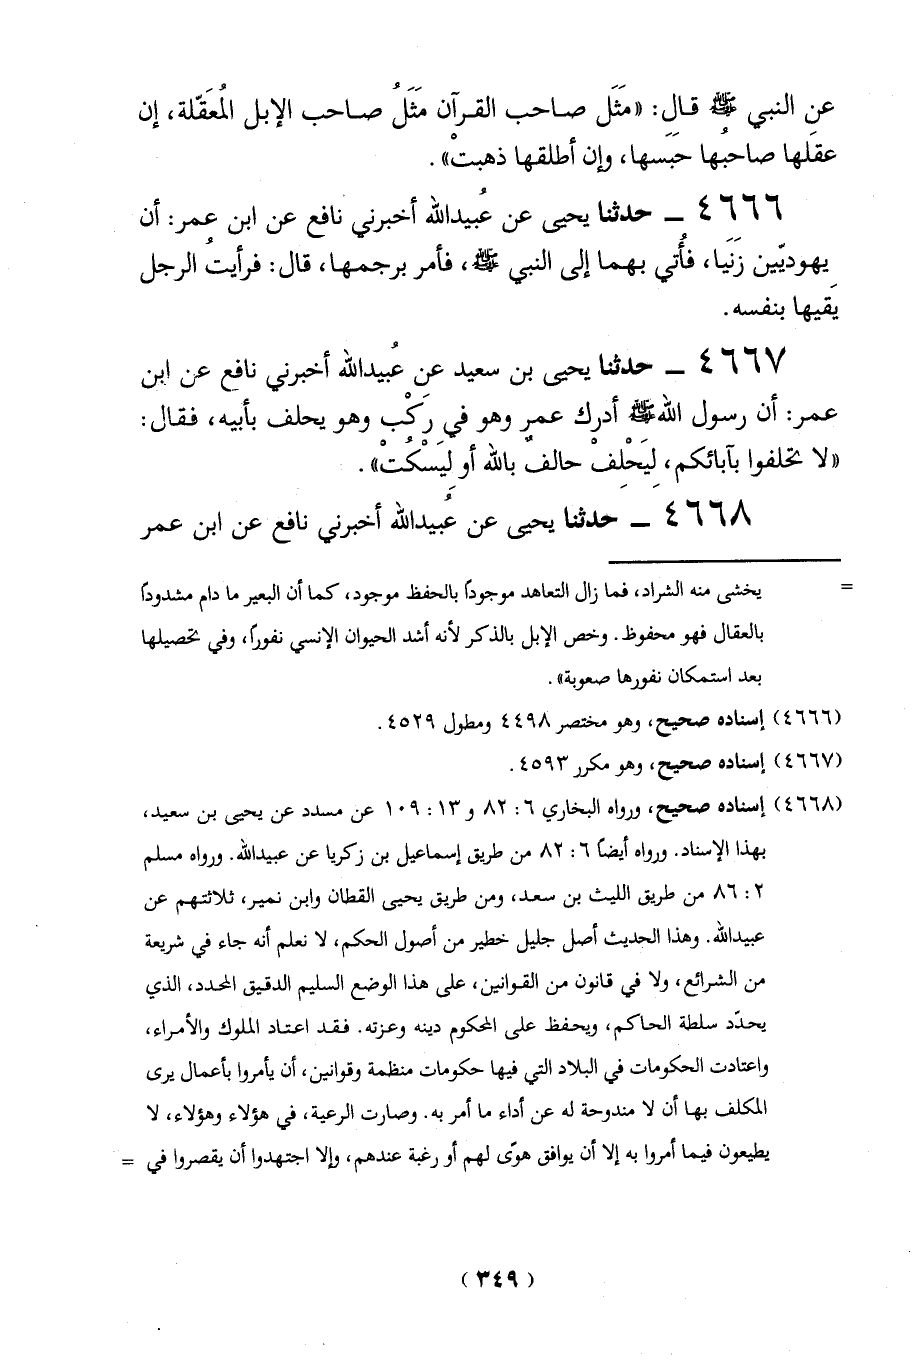 عن النبي ﷺ قال: «مَثَل صاحب القرآن مَثَلُ صاحب الإبل المُعَقّلة، إن
عقَلها صاحبُها حَبَسها، وإن أطلقها ذهبتْ».
٤٦٦٦ ـ حدثنا يحيى عن عُبيدالله أخبرني نافع عن ابن عمر: أن
يهوديّين زَنَيا، فأُتي بهما إلى النبي ﷺ، فأمر برجمها، قال: فرأيتُ الرجل
يَقيها بنفسه.
٤٦٦٧ ـ حدثنا يحيى بن سعيد عن عُبيدالله أخبرني نافع عن ابن
عمر: أن رسول الله ﷺ أدرك عمر وهو في رَكْب وهو يحلف بأبيه، فقال:
«لا تحلفوا بآبائكم، لِيَحْلِفْ حالفٌ بالله أو لِيَسْكُتْ».
٤٦٦٨ ـ حدثنا يحيى عن عُبيدالله أخبرني نافع عن ابن عمر
= يخشى منه الشراد، فما زال التعاهد موجوداً بالحفظ موجود، كما أن البعير ما دام مشدوداً
بالعقال فهو محفوظ. وخص الإبل بالذكر لأنه أشد الحيوان الإنسي نفوراً، وفي تحصيلها
بعد استمكان نفورها صعوبة».
(٤٦٦٦) إسناده صحيح، وهو مختصر ٤٤٩٨ ومطول ٤٥٢٩.
(٤٦٦٧) إسناده صحيح، وهو مكرر ٤٥٩٣.
(٤٦٦٨) إسناده صحيح، ورواه البخاري ٦: ٨٢ و١٣: ١٠٩ عن مسدد عن يحيى بن سعيد،
بهذا الإسناد. ورواه أيضاً ٦: ٨٢ من طريق إسماعيل بن زكريا عن عبيدالله. ورواه مسلم
٢: ٨٦ من طريق الليث بن سعد، ومن طريق يحيى القطان وابن نمير، ثلاثتهم عن
عبيدالله. وهذا الحديث أصل جليل خطير من أصول الحكم، لا نعلم أنه جاء في شريعة
من الشرائع، ولا في قانون من القوانين، على هذا الوضع السليم الدقيق المحدد، الذي
يحدّد سلطة الحاكم، ويحفظ على المحكوم دينه وعزته. فقد اعتاد الملوك والأمراء،
واعتادت الحكومات في البلاد التي فيها حكومات منظمة وقوانين، أن يأمروا بأعمال يرى
المكلف بها أن لا مندوحة له عن أداء ما أمر به. وصارت الرعية، في هؤلاء وهؤلاء، لا
يطيعون فيما أمروا به إلا أن يوافق هوًى لهم أو رغبة عندهم، وإلا اجتهدوا أن يقصروا في =
(٣٤٩)